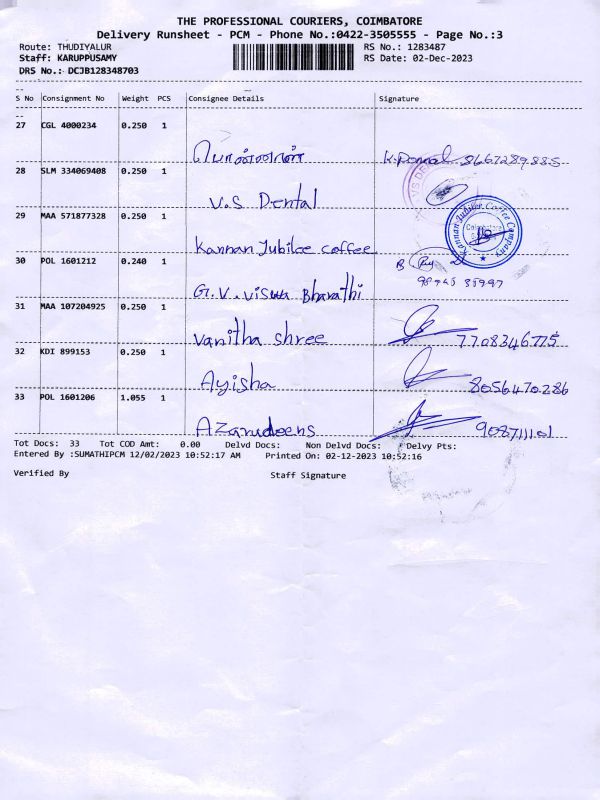 THE PROFESSIONAL COURIERS, COIMBATORE
Delivery Runsheet - PCM - Phone No.:0422-3505555 - Page No.:3
Route: THUDIYALUR RS No.: 1283487
Staff: KARUPPUSAMY RS Date: 02-Dec-2023
DRS No.: DCJB128348703
S No Consignment No Weight PCS Consignee Details Signature
27 CGL 4000234 0.250 1
8667289885
28 SLM 334069408 0.250 1
V.S Dental
29 MAA 571877328 0.250 1
Kannan Jubilee coffee
Kannan Jubilee Coffee Company
30 POL 1601212 0.240 1
G.V. viswa Bharathi
31 MAA 107204925 0.250 1
vanitha shree 7708346775
32 KDI 899153 0.250 1
Ayisha 8056470286
33 POL 1601206 1.055 1
Azarudeens
Tot Docs: 33 Tot COD Amt: 0.00 Delvd Docs: Non Delvd Docs: Delvy Pts:
Entered By :SUMATHIPCM 12/02/2023 10:52:17 AM Printed On: 02-12-2023 10:52:16
Verified By Staff Signature